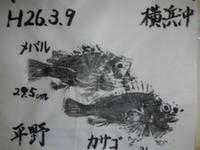 H26.3.9 横浜沖
メバル
29.5cm
平野
カサゴ